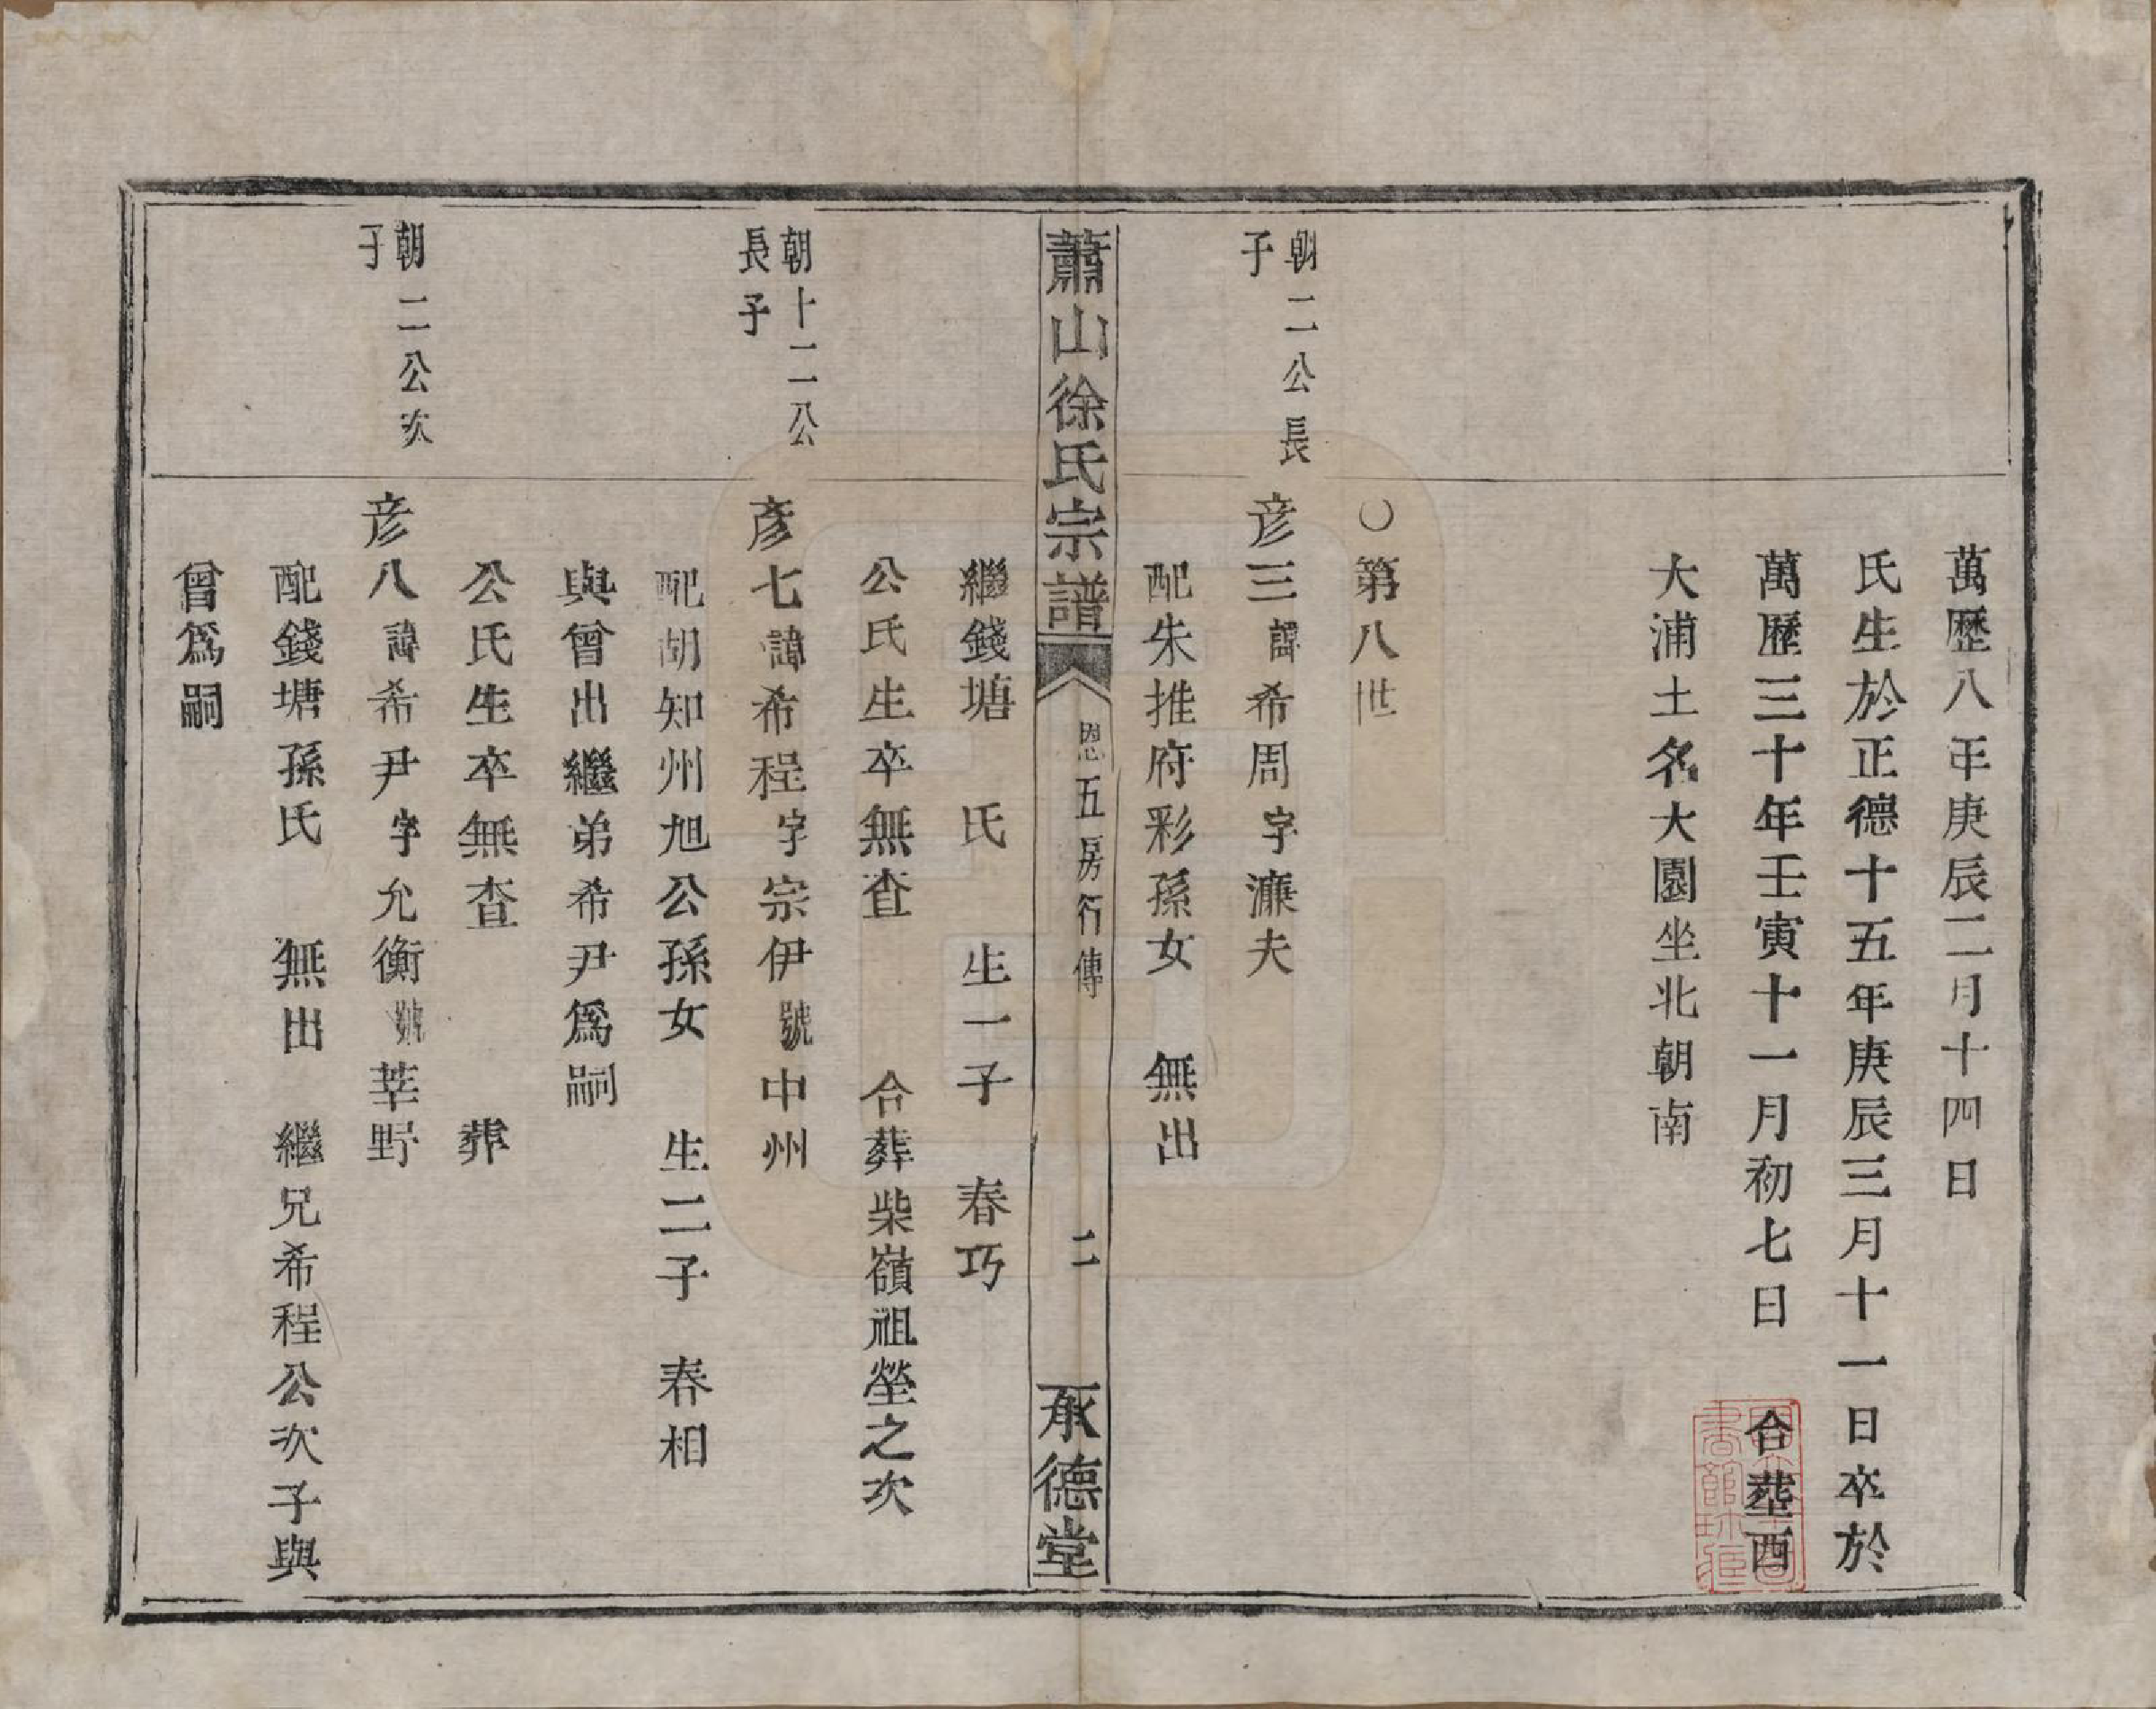 萬歷八年庚辰二月十四日
氏生於正德十五年庚辰三月十一日卒於
萬歷三十年壬寅十一月初七日　合塟西
大浦土名大園坐北朝南
○第八世
朝二公長
子
彦三諱希周字濂夫
配朱推府彩孫女　無出
蕭山徐氏宗譜
恩五房行傳
二
承德堂
繼錢塘　氏　生一子　春巧
公氏生卒無查　合葬柴嶺祖塋之次
朝十二公
長子
彥七諱希程字宗伊號中州
配胡知州旭公孫女　生二子　春相
與曾出繼弟希尹爲嗣
公氏生卒無查　葬
朝二公次
子
彦八諱希尹字允衡號莘野
配錢塘孫氏　無出　繼兄希程公次子與
曾爲嗣